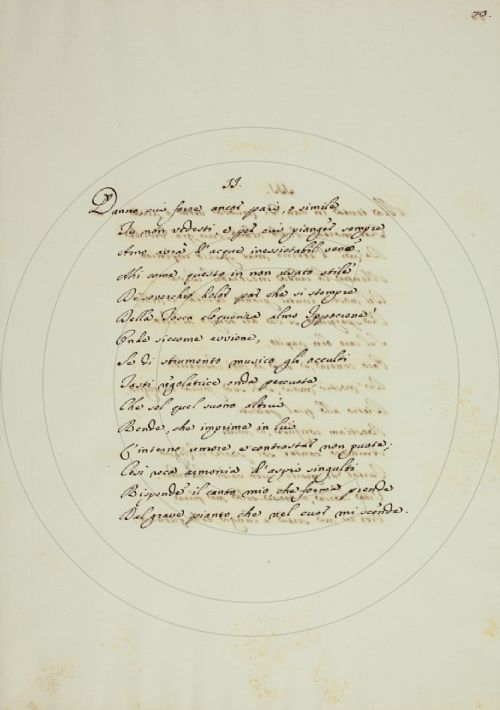 73.
II.
Danno, cui forse ancor pari, o simile
Tu non vedesti, e per cui pianger sempre
Arno verrà d'acque inessiccabil vene,
Ahi come questo in non usato stile
Di soverchio dolor par che si stempre
Della Tosca eloquenza almo Ippocrene!
Onde siccome avviene,
Se di strumento musico gli occulti
Tasti regolatrice onda percuote
Che sol quel suono altrui
Rende, che imprime in lui
L'interno umore e contrastar non puote;
Così roca armonia d'aspri singulti
Risponde il canto mio, che forma prende
Dal grave pianto, che nel cuor mi scende.